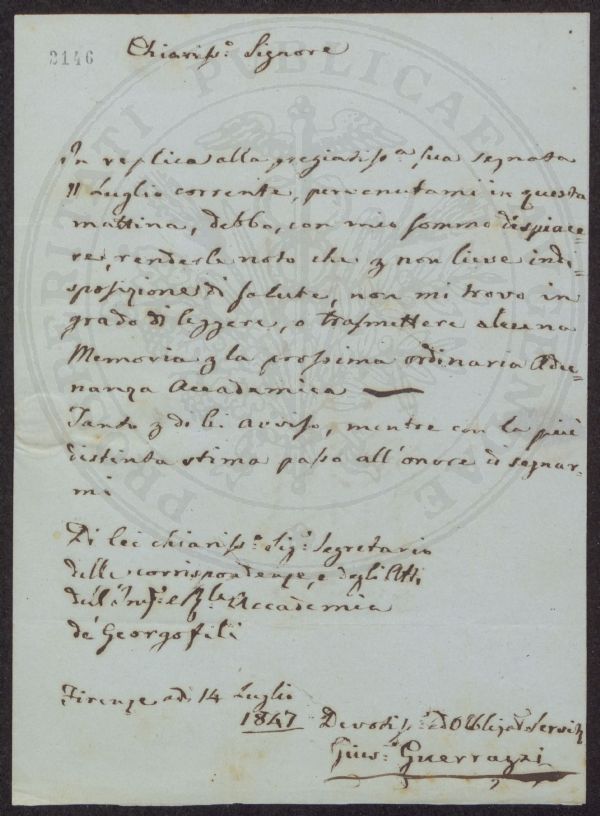 2146
Chiariss.º Signore
In replica alla pregiatiss.ª sua segnata
11 Luglio corrente, pervenutami in questa
mattina, debbo, con mio sommo dispiace-
re, renderla noto che p non lieve indi-
sposizione di salute, non mi trovo in
grado di leggere, o trasmettere alcuna
Memoria p la prossima ordinaria Adu-
nanza Accademica —
Tanto p di lei avviso, mentre con la più
distinta stima passo all'onore di segnar-
mi
Di Lei chiariss.º Sig.º Segretario
delle corrispondenze, e degli Atti
dell' Accademia
de' Georgofili
Firenze ad 14 Luglio
1847
Devotiss.º ed Obbligat Servit
Gius.º Guerrazzi
PROSPERITATI PUBLICAE AUGENDAE